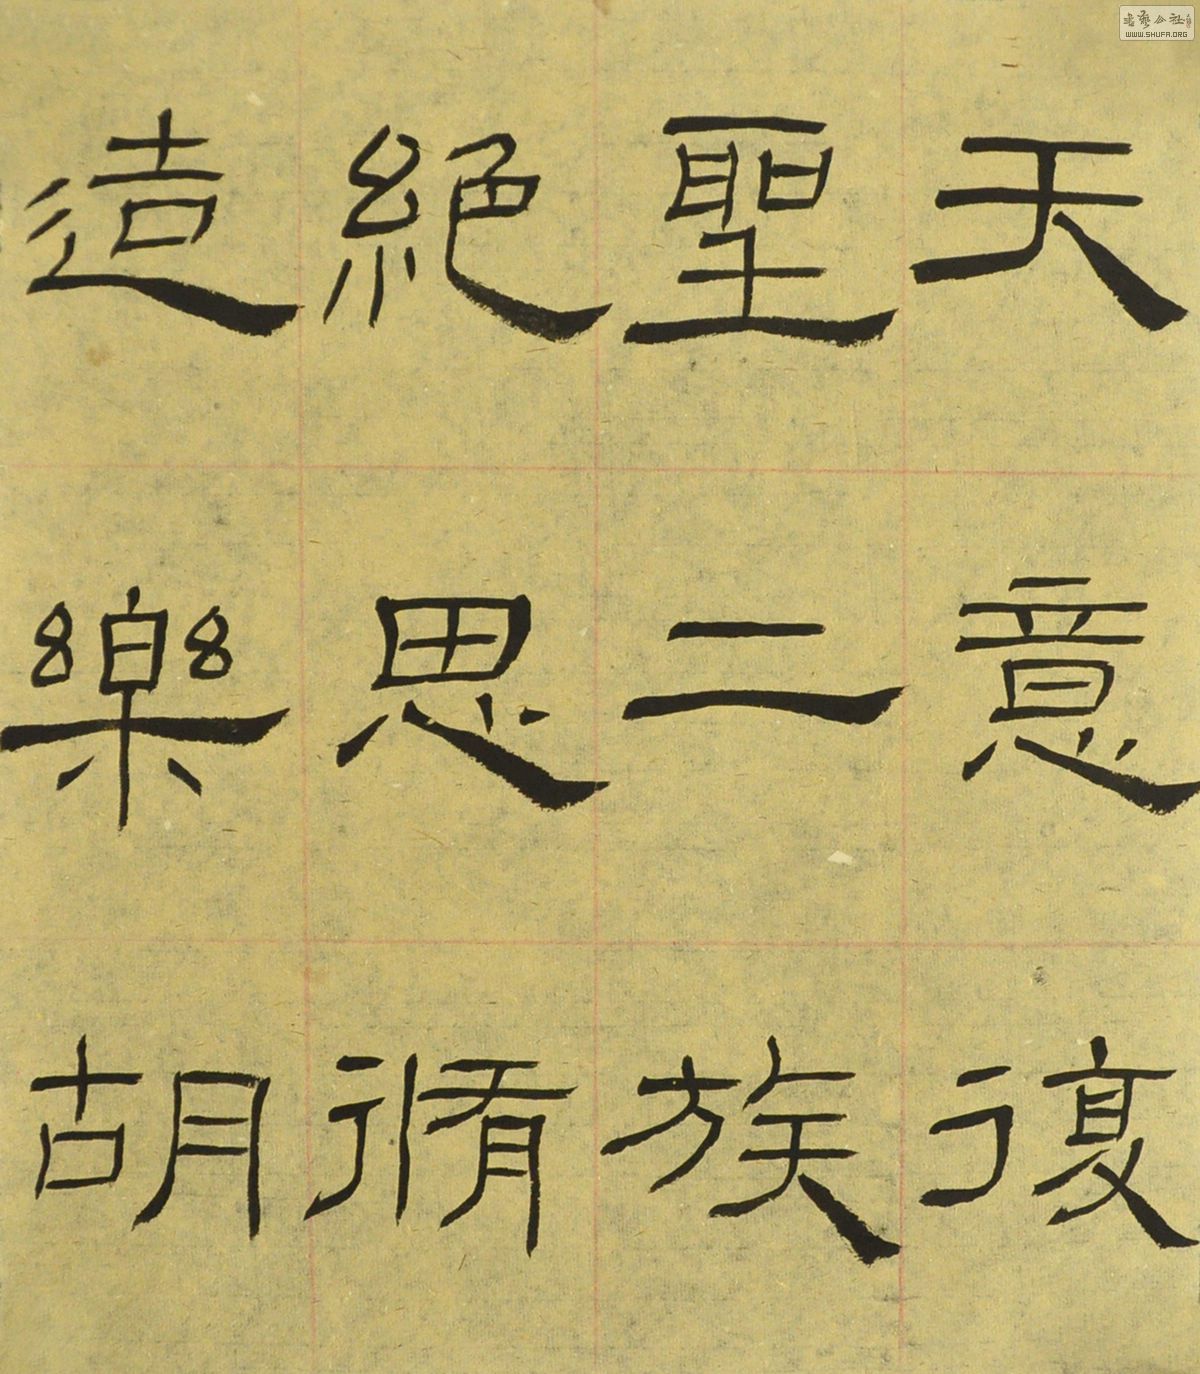 天意復
聖二族
絕思脩
造樂胡
書藝公社
WWW.SHUFA.ORG